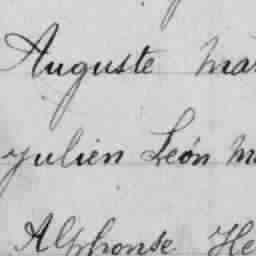 Auguste Mar
Julien Léon M
Alphonse He